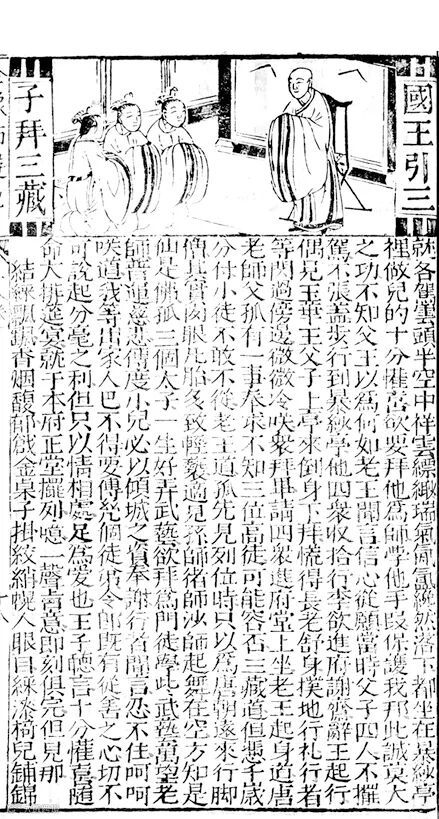 國王引三
子拜三藏
就各駕雲頭半空中祥雲縹緲瑞氣氤氳縱然落下都坐在暴紗亭
裡做兒的十分懽喜欲要拜他為師學他手段保護我邦此誠莫大
之功不知父王以為何如老王聞言信心從願當時父子四人不擺
駕不張葢步行到暴紗亭他四衆收拾行李欲進府謝齋辭王起行
偶見玉華王父子上亭來倒身下拜慌得長老舒身撲地行礼行者
等閃過傍邊微微冷咲衆拜畢請四衆進府堂上坐老王起身道唐
老師父孤有一事奉求不知三位高徒可能容否三藏道但憑千歲
分付小徒不敢不從老王道孤先見列位時只以為唐朝遠來行脚
僧其實肉眼凡胎多致輕褻適見孫師猪師沙師起舞在空方知是
仙是佛孤三個犬子一生好弄武藝欲拜為門徒學些武藝萬望老
師普運慈悲傳度小兒必以傾城之資奉謝行者聞言忍不住呵呵
咲道我等出家人巴不得要傳幾個徒弟令郎既有從善之心切不
可說起分毫之利但只以情相處足為愛也王子聽言十分懽喜隨
命大排筵宴就于本府正堂擺列噫一聲言意即刻俱完但見那
結綵飄颻香烟馥郁戧金桌子掛絞綃幌人眼目綵漆椅兒鋪錦